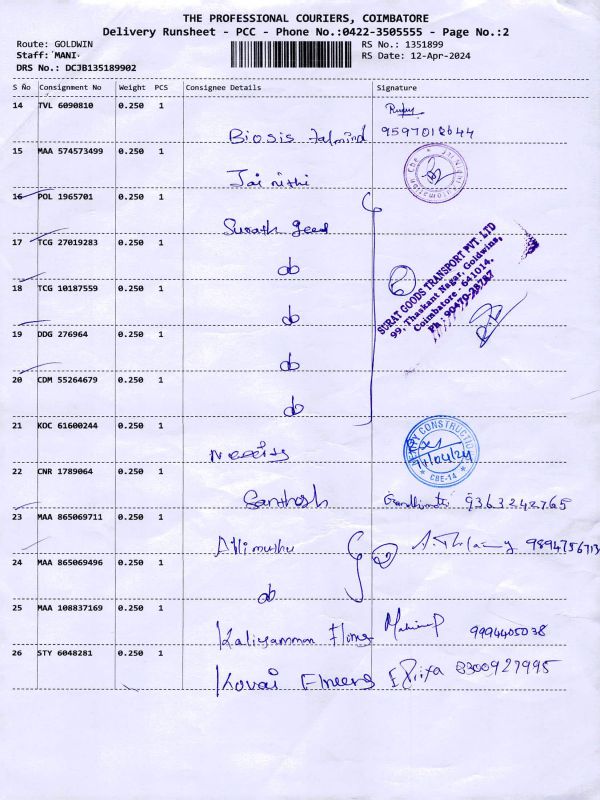 THE PROFESSIONAL COURIERS, COIMBATORE
Delivery Runsheet - PCC - Phone No.:0422-3505555 - Page No.:2
Route: GOLDWIN RS No.: 1351899
Staff: MANI RS Date: 12-Apr-2024
DRS No.: DCJB135189902
S No Consignment No Weight PCS Consignee Details Signature
14 TVL 6090810 0.250 1
Biosis
15 MAA 574573499 0.250 1
Jai nithi
16 POL 1965701 0.250 1
Surath
17 TCG 27019283 0.250 1
do
SURAT GOODS TRANSPORT PVT. LTD
99, Thaskant Nagar, Goldwins,
Coimbatore - 641014.
Ph : 90470-28787
18 TCG 10187559 0.250 1
do
19 DDG 276964 0.250 1
do
20 CDM 55264679 0.250 1
do
21 KOC 61600244 0.250 1
CONSTRUCTION
CBE-14
22 CNR 1789064 0.250 1
Santhosh 9363242765
23 MAA 865069711 0.250 1
Attimuthu 9894756713
24 MAA 865069496 0.250 1
do
25 MAA 108837169 0.250 1
Kaliyamman 9994405038
26 STY 6048281 0.250 1
Kovai Priya 8300927995